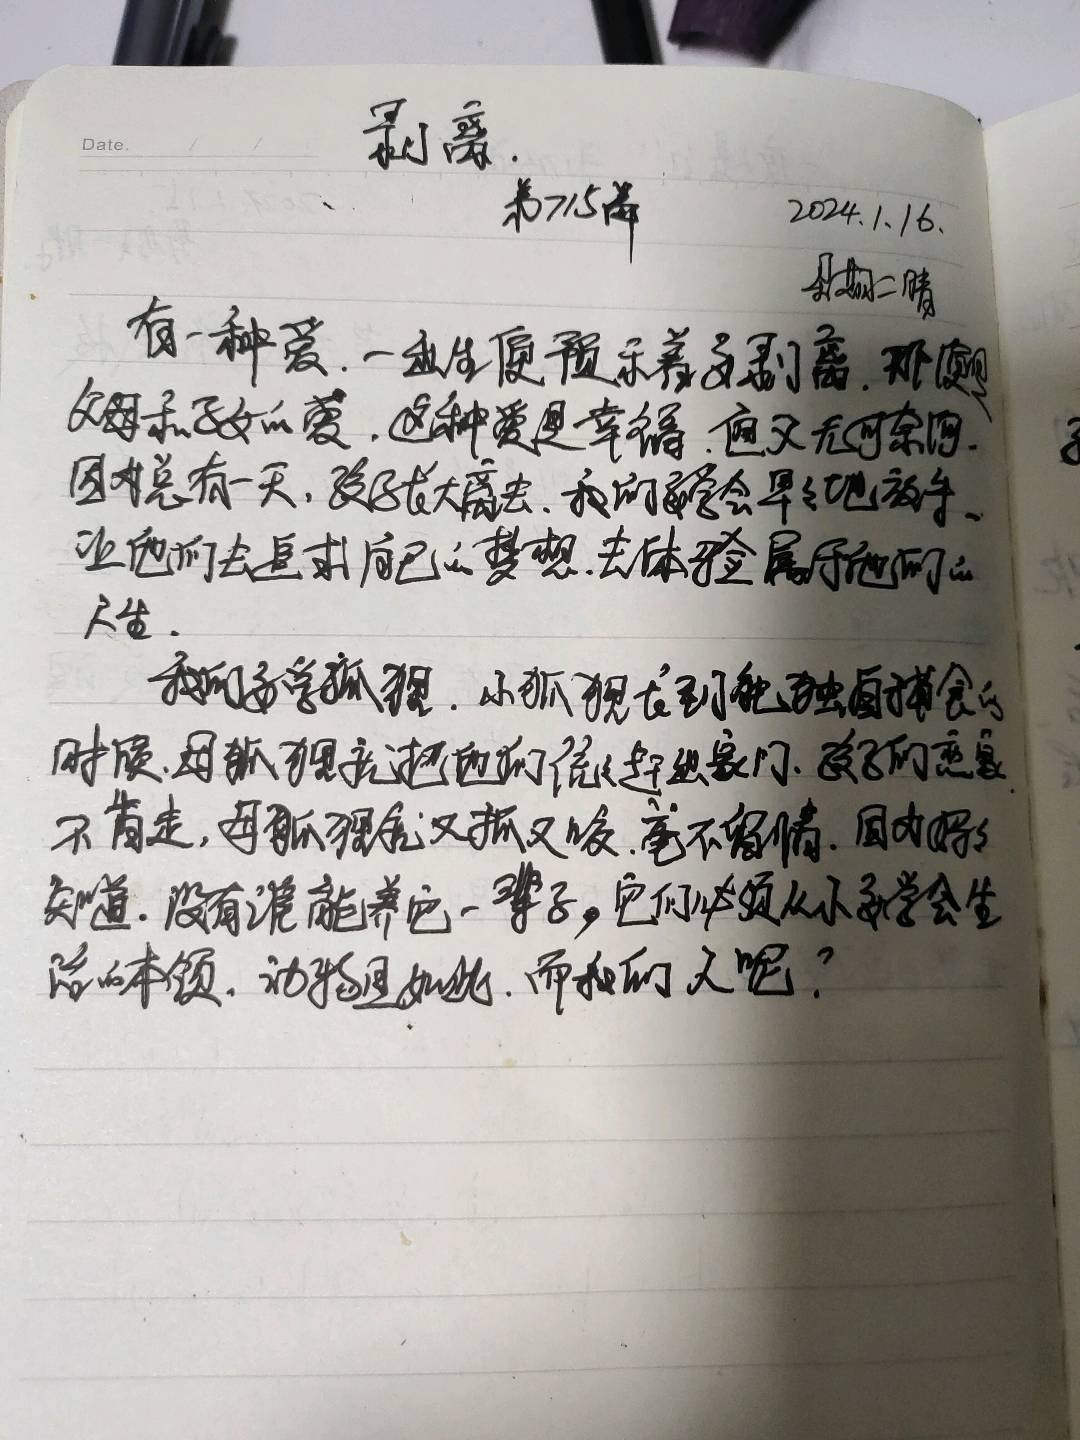 Date. / /
剥离.
第715篇
2024.1.16.
星期二晴
有一种爱.一出生便预示着要剥离.那便是
父母和子女的爱.这种爱是幸福.但又无可奈何.
因为总有一天,孩子长大离去.我们要学会早早地放手、
让他们去追求自己的梦想.去体验属于他们的
人生.
我们要学狐狸.小狐狸长到能独自捕食的
时候.母狐狸就把他们统统赶出家门.孩子们恋家
不肯走,母狐狸就又抓又咬.毫不留情.因为妈妈
知道.没有谁能养它一辈子,它们必须从小要学会生
活的本领.动物且如此.而我们人呢?